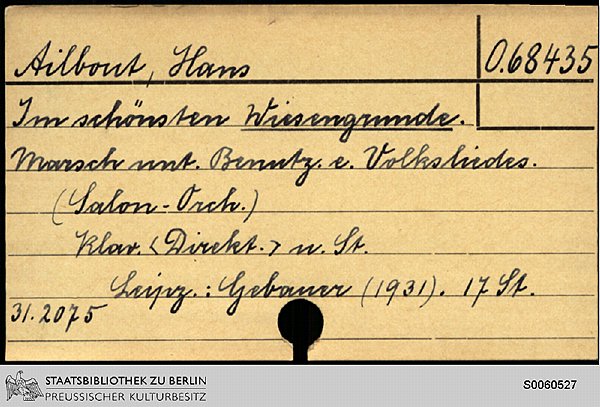 Ailbout, Hans
O.68435
Im schönsten Wiesengrunde.
Marsch unt. Benutz. e. Volksliedes.
(Salon-Orch.)
Klav. <Direkt.> u. St.
Leipz.: Gebauer (1931). 17 St.
31.2075
STAATSBIBLIOTHEK ZU BERLIN
PREUSSISCHER KULTURBESITZ
S0060527